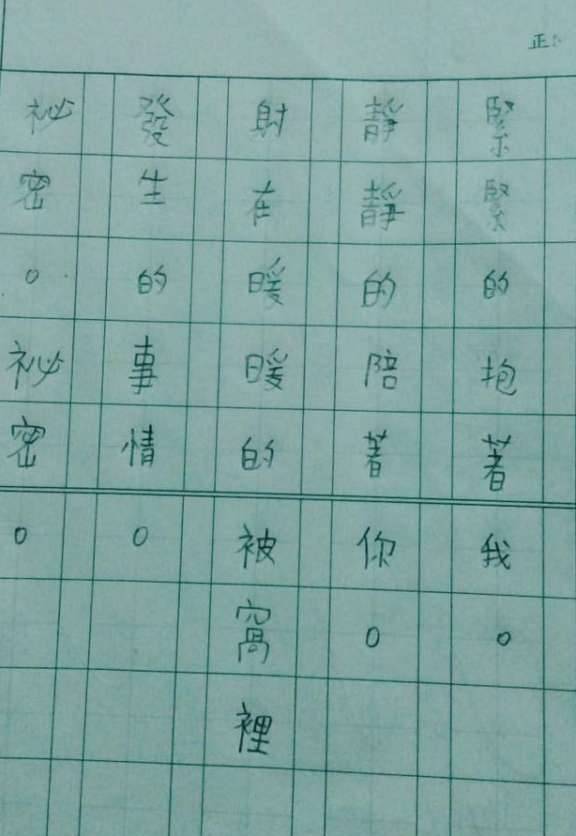 正
緊緊的抱著我。
靜靜的陪著你。
射在暖暖的被窩裡
發生的事情。
祕密。祕密。